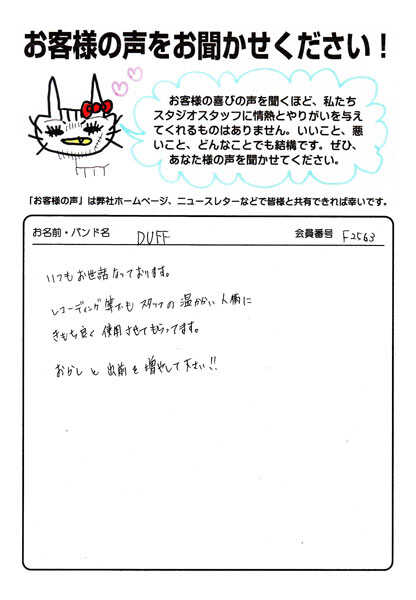 お客様の声をお聞かせください！
お客様の喜びの声を聞くほど、私たち
スタジオスタッフに情熱とやりがいを与え
てくれるものはありません。いいこと、悪
いこと、どんなことでも結構です。ぜひ、
あなた様の声を聞かせてください。
「お客様の声」は弊社ホームページ、ニュースレターなどで皆様と共有できれば幸いです。
お名前・バンド名 DUFF 会員番号 F2563
いつもお世話なっております。
レコーディング等でも スタッフの 温かい 人柄に
きもち良く 使用させてもらってます。
おかし と 出前 を 増やして下さい!!